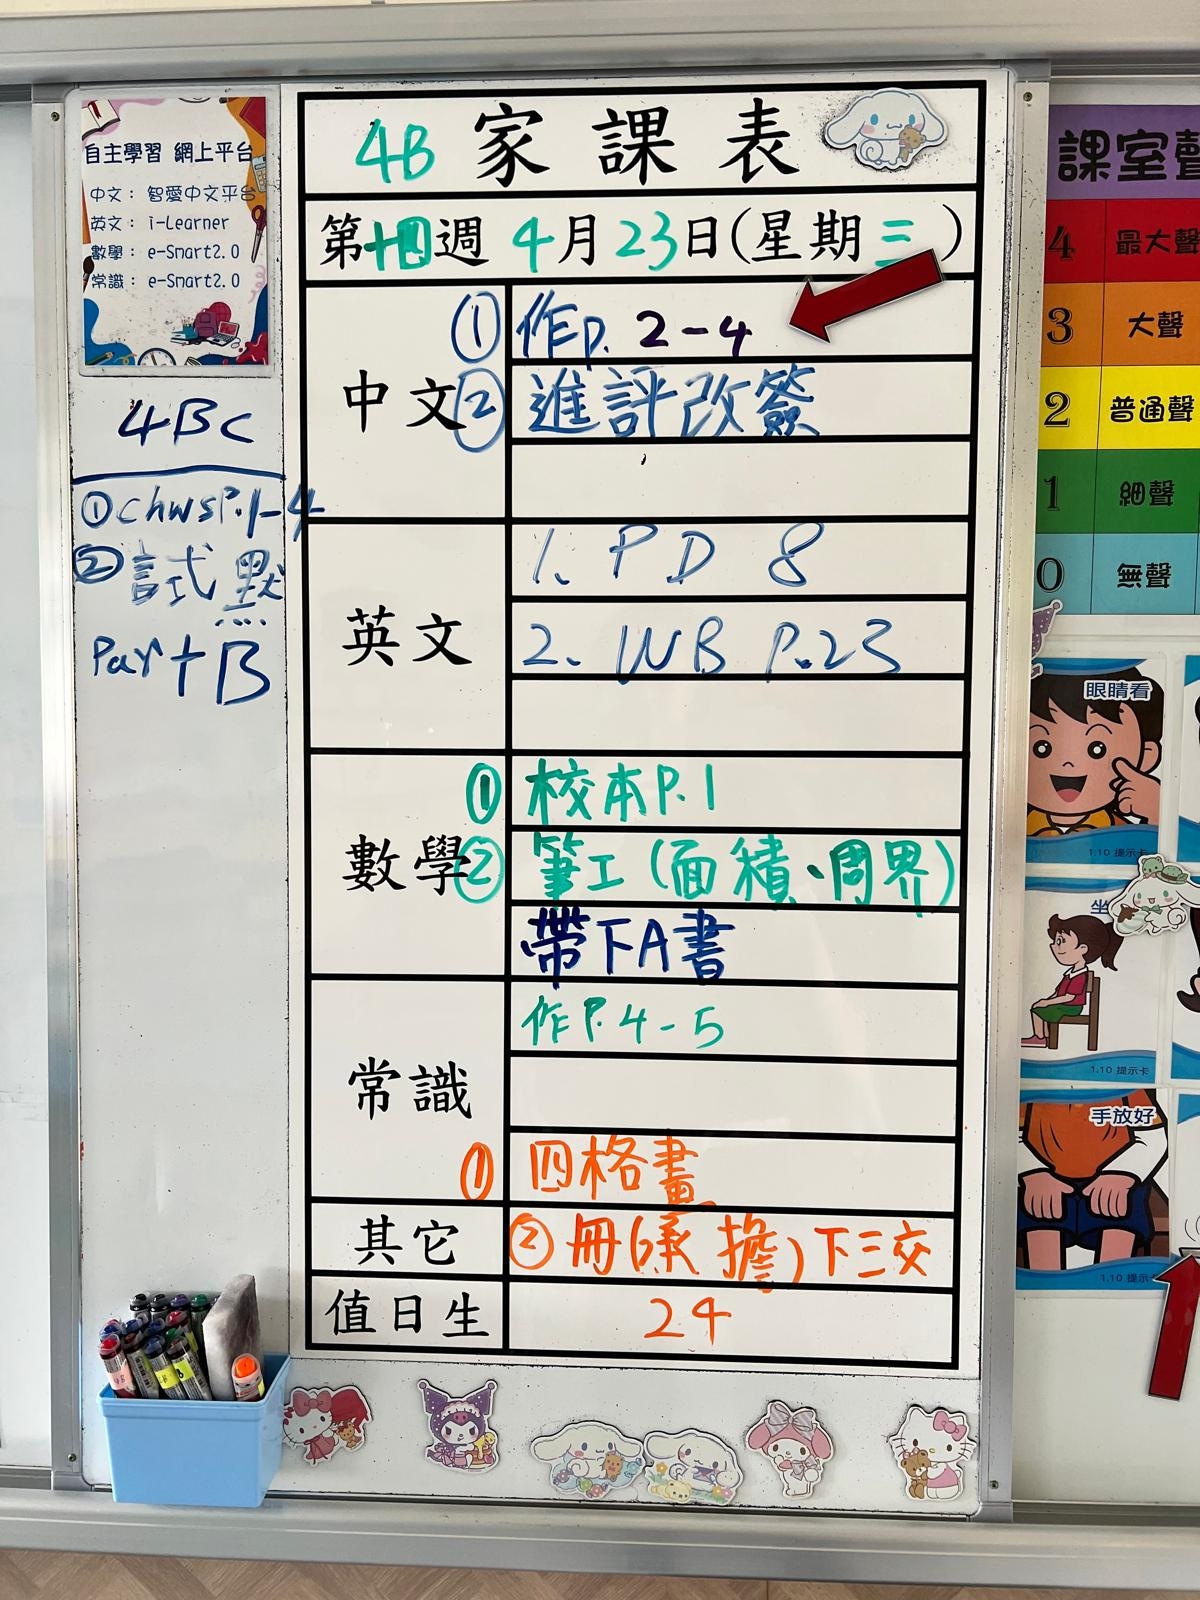 自主學習 網上平台
中文： 智愛中文平台
英文： i-Learner
數學： e-Smart2.0
常識： e-Smart2.0
4Bc
① chwsP.1-4
② 試默
Part B
4B 家課表
第十四週 4月23日(星期三)
中文
① 作p. 2-4
② 進評改簽
英文
1. PD 8
2. WB P.23
數學
① 校本P.1
② 筆工(面積、周界)
帶下A書
常識
作P.4-5
① 四格畫
其它
② 冊(承擔)下三交
值日生
24
課室聲
4 最大聲
3 大聲
2 普通聲
1 細聲
0 無聲
眼睛看
1.10 提示卡
坐
1.10 提示卡
手放好
1.10 提示